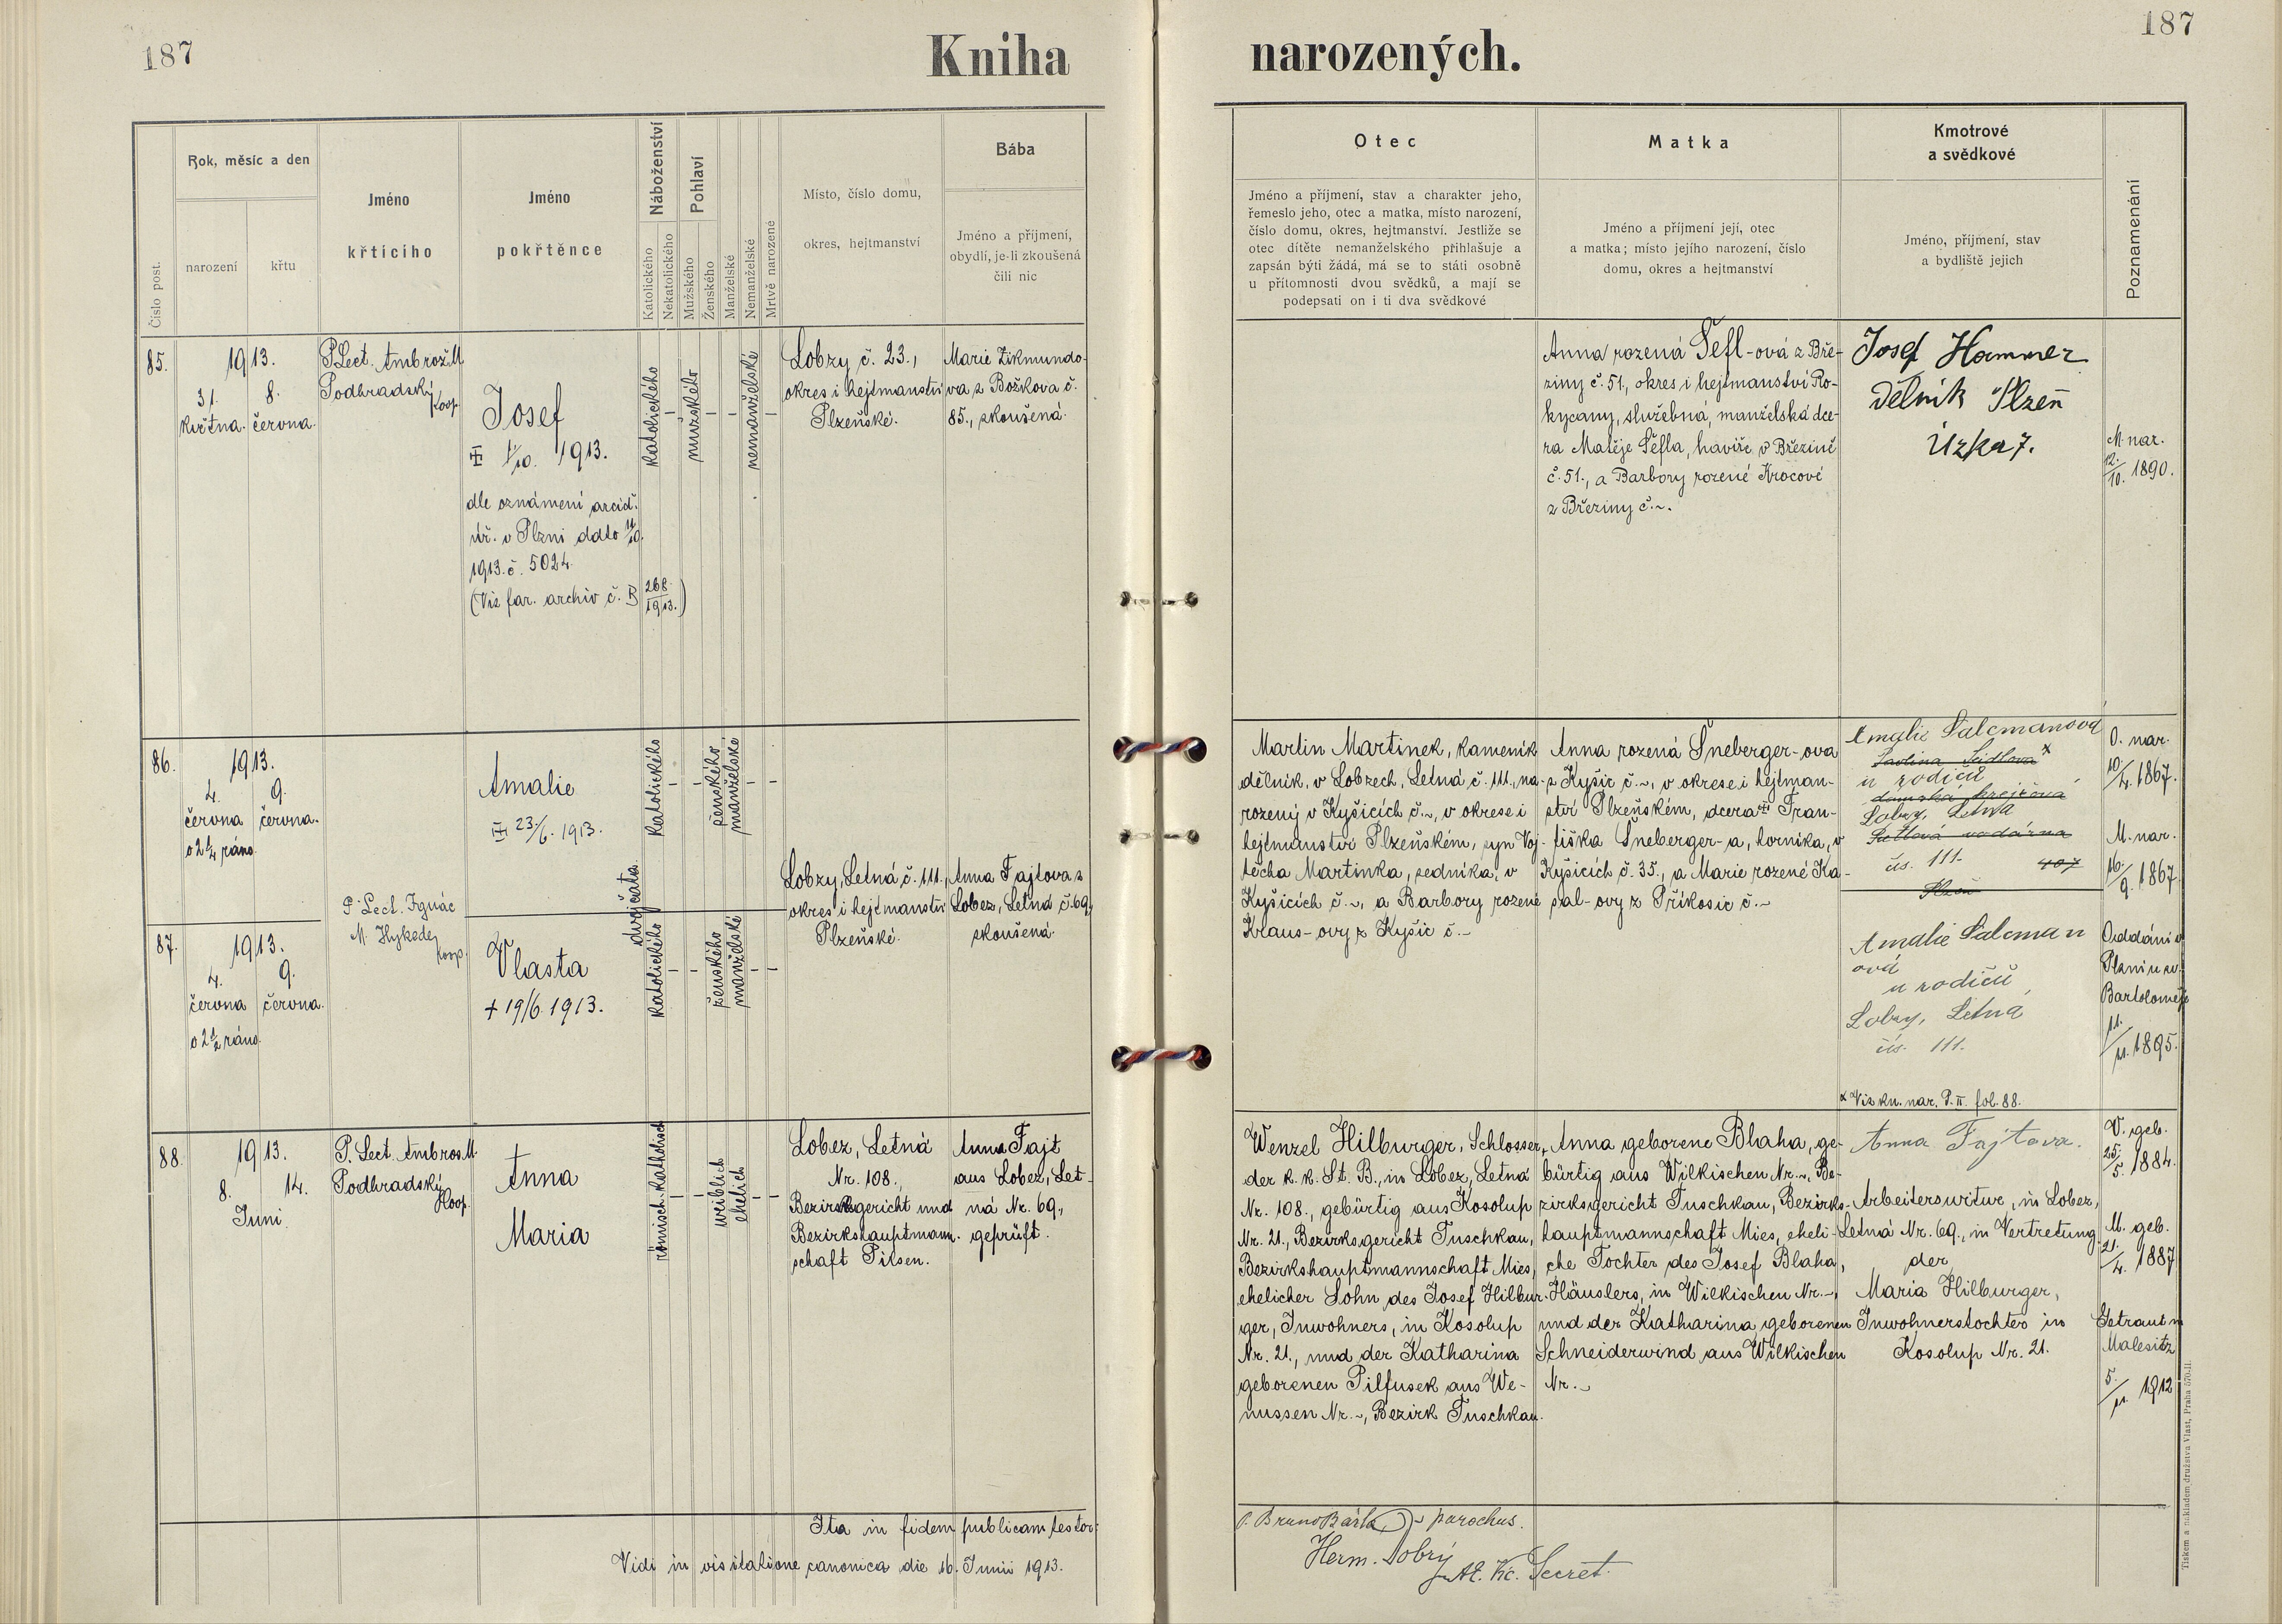 187
Kniha
narozených.
187
Číslo post.
Rok, měsíc a den
narození
křtu
Jméno
křtícího
Jméno
pokřtěnce
Náboženství
Katolického
Nekatolického
Pohlaví
Mužského
Ženského
Manželské
Nemanželské
Mrtvě narozené
Místo, číslo domu,
okres, hejtmanství
Bába
Jméno a příjmení,
obydlí, je-li zkoušená
čili nic
Otec
Jméno a příjmení, stav a charakter jeho,
řemeslo jeho, otec a matka, místo narození,
číslo domu, okres, hejtmanství. Jestliže se
otec dítěte nemanželského přihlašuje a
zapsán býti žádá, má se to státi osobně
u přítomnosti dvou svědků, a mají se
podepsati on i ti dva svědkové
Matka
Jméno a příjmení její, otec
a matka; místo jejího narození, číslo
domu, okres a hejtmanství
Kmotrové
a svědkové
Jméno, příjmení, stav
a bydliště jejich
Poznamenání
85.
1913.
31.
května.
8.
června.
P. Lect. Ambrož M.
Podhradský
koop.
Josef
1/10. 1913.
dle oznámení arcid.
úř. v Plzni ddto 11/10.
1913. č. 5024.
(Viz far. archiv č. B 268/1913.)
katolického
–
mužského
–
–
nemanželské
–
Lobzy č. 23.,
okres i hejtmanství
Plzeňské.
Marie Zikmundo-
va z Božkova č.
85., zkoušená.
Anna rozená Šefl-ová z Bře-
ziny č. 51., okres i hejtmanství Ro-
kycany, služebná, manželská dce-
ra Matěje Šefla, havíře v Březině
č. 51., a Barbory rozené Krocové
z Březiny č. ~.
Josef Hammer
Dělník Plzeň
Úzka 7.
M. nar.
12./10. 1890.
86.
1913.
4.
června
o 2 1/4 ráno.
9.
června.
Amalie
23./6. 1913.
katolického
–
–
ženského
manželské
–
–
dvojčata.
P. Lect. Ignác
M. Hykede
koop.
Lobzy, Letná č. 111.,
okres i hejtmanství
Plzeňské.
Anna Fajtova z
Lobez, Letná č. 69.,
zkoušená.
Martin Martinek, kameník
dělník, v Lobzech, Letná č. 111., na-
rozený v Kyšicích č. ~, v okrese i
hejtmanství Plzeňském, syn Voj-
těcha Martinka, sedníka, v
Kyšicích č. ~, a Barbory rozené
Klaus-ovy z Kyšic č. ~
Anna rozená Šneberger-ova
z Kyšic č. ~, v okrese i hejtman-
ství Plzeňském, dcera Fran-
tiška Šneberger-a, horníka, v
Kyšicích č. 35., a Marie rozené Ka-
pal-ovy z Příkosic č. ~
Amalie Salcmanová
u rodičů
Lobzy, Letna
čís. 111.
407
Plzeň
O. nar.
10/4. 1867.
M. nar.
16./9. 1867.
87.
1913.
4.
června
o 2 1/2 ráno.
9.
června.
Vlasta
+ 19/6. 1913.
katolického
–
–
ženského
manželské
–
–
Amalie Salcman
ová
u rodičů
Lobzy, Letná
čís. 111.
x Viz kn. nar. P. II. fol. 88.
Oddáni v
Plzni u sv.
Bartoloměje
11./11. 1895.
88.
1913.
8.
14.
Juni.
P. Lect. Ambros M.
Podhradský
Koop.
Anna
Maria
römisch-katholisch
–
–
weiblich
ehelich
–
–
Lobez, Letná
Nr. 108.,
Bezirksgericht und
Bezirkshauptmann-
schaft Pilsen.
Anna Fajt
aus Lobez, Let-
ná Nr. 69.,
geprüft.
Wenzel Hilburger, Schlosser,
der k. k. St. B., in Lobez, Letná
Nr. 108., gebürtig aus Kosolup
Nr. 21., Bezirksgericht Tuschkau,
Bezirkshauptmannschaft Mies,
ehelicher Sohn des Josef Hilbur-
ger, Inwohners, in Kosolup
Nr. 21., und der Katharina
geborenen Pilfusek aus We-
nussen Nr. ~, Bezirk Tuschkau.
Anna geborene Blaha, ge-
bürtig aus Wilkischen Nr. ~, Be-
zirksgericht Tuschkau, Bezirks-
hauptmannschaft Mies, eheli-
che Tochter des Josef Blaha,
Häuslers, in Wilkischen Nr. ~,
und der Katharina geborenen
Schneiderwind aus Wilkischen
Nr. ~
Anna Fajtova.
Arbeiterswitwe, in Lobez,
Letná Nr. 69., in Vertretung
der
Maria Hilburger,
Inwohnerstochter in
Kosolup Nr. 21.
V. geb.
25./5. 1884.
M. geb.
21./4. 1887
Getraut in
Malesitz
5./11. 1912
Ita in fidem publicam testor:
P. Bruno Bárta parochus.
Vidi in visitatione canonica die 16. Junii 1913.
Herm. Dobrý
Secret.
Tiskem a nákladem družstva Vlast, Praha 570-II.